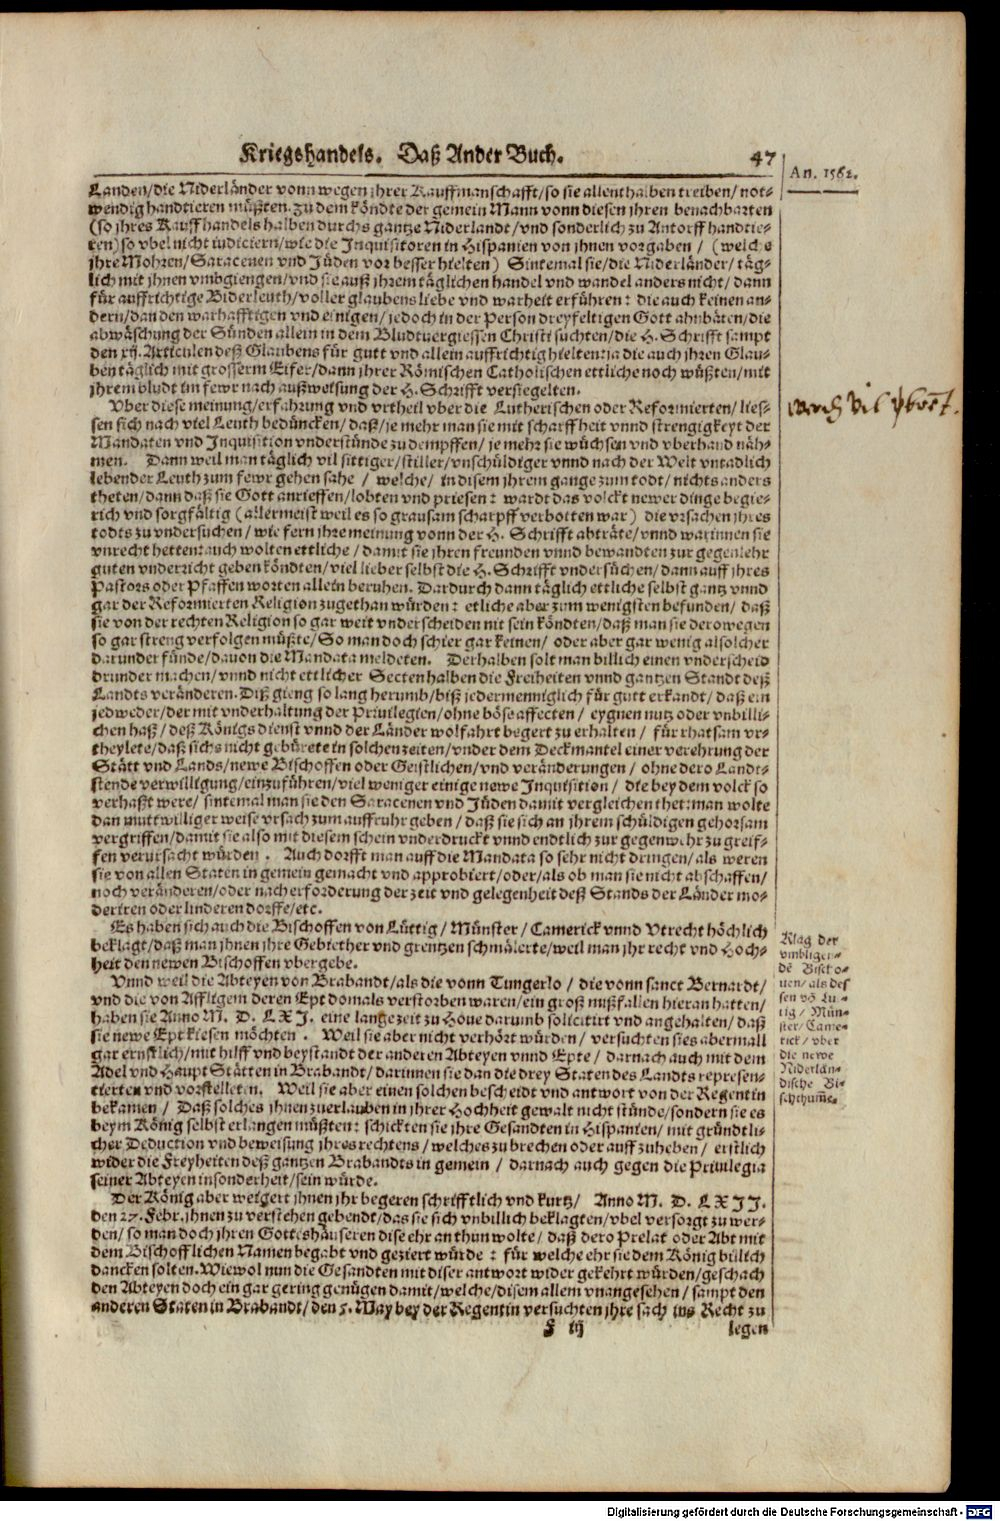 Kriegshandels. Daß Ander Buch. 47
An. 1562.
Landen/die Niderländer vonn wegen jhrer Kauffmanschafft/so sie allenthalben treiben/not-
wendig handtieren müßten. zu dem köndte der gemein Mann vonn diesen jhren benachbarten
(so jhres Kauffhandels halben durchs gantze Niderlandt/vnd sonderlich zu Antorff handtie-
ren) so vbel nicht iudiciern/wie die Inquisitoren in Hispanien von jhnen vorgaben/ (welche
jhre Mohren/Saracenen vnd Jüden vor besser hielten) Sintemal sie/die Niderländer/täg-
lich mit jhnen vmbgiengen/vnd sie auß jhrem täglichen handel vnd wandel anders nicht/dann
für auffrichtige Biderleuth/voller glaubens liebe vnd warheit erführen: die auch keinen an-
dern/dan den warhafftigen vnd einigen/jedoch in der Person dreyfeltigen Gott ahnbäten/die
abwäschung der Sünden allein in dem Bludtuergiessen Christi süchten/die H. Schrifft sampt
den xij. Articulen deß Glaubens für gutt vnd allein auffrichtig hielten: ja die auch jhren Glau-
ben täglich mit grosserm Eifer/dann jhrer Römischen Catholischen ettliche noch wüßten/mit
jhrem bludt im fewr nach außweisung der H. Schrifft versiegelten.
Vber diese meinung/erfahrung vnd vrtheil vber die Lutherischen oder Reformierten/lies-
sen sich nach viel Leuth bedüncken/daß/je mehr man sie mit scharffheit vnnd strengigkeyt der
Mandaten vnd Inquisition vnderstünde zu dempffen/je mehr sie wüchsen vnd vberhand näh-
men. Dann weil man täglich vil sittiger/stiller/vnschüldiger vnnd nach der Welt vntadlich
lebender Leuth zum fewr gehen sahe/welche/in disem jhrem gange zum todt/nichts anders
theten/dann daß sie Gott anrieffen/lobten vnd priesen: wardt das volckt newer dinge begie-
rich vnd sorgfältig (allermeist weil es so grausam scharpff verbotten war) die vrsachen jhres
todts zu vndersuchen/wie fern jhre meinung vonn der H. Schrifft abträte/vnnd warinnen sie
vnrecht hetten: auch wolten ettliche/damit sie jhren freunden vnnd bewandten zur gegenlehr
guten vnderricht geben köndten/viel lieber selbst die H. Schrifft vndersüchen/dann auff jhres
Pastors oder Pfaffen worten allein beruhen. Dardurch dann täglich ettliche selbst gantz vnnd
gar der Reformierten Religion zugethan würden: etliche aber zum wenigsten befunden/daß
sie von der rechten Religion so gar weit vnderscheiden nit sein köndten/daß man sie derowegen
so gar streng verfolgen müßte/So man doch schier gar keinen/oder aber gar wenig alsolcher
darunder fünde/dauon die Mandata meldeten. Derhalben solt man billich einen vnderscheid
drunder machen/vnnd nicht ettlicher Secten halben die Freiheiten vnnd gantzen Standt deß
Landts veränderen. Diß gieng so lang herumb/biß jedermenniglich für gutt erkandt/daß ein
jedweder/der mit vnderhaltung der Priuilegien/ohne böse affecten/eygnen nutz oder vnbilli-
chen haß/deß Königs dienst vnnd der Länder wolfahrt begert zu erhalten/für rhatsam vr-
theylete/daß sichs nicht gebürete in solchen zeiten/vnder dem Deckmantel einer verehrung der
Stätt vnd Lands/newe Bischoffen oder Geistlichen/vnd veränderungen/ohne dero Landt-
stende verwilligung/einzuführen/viel weniger einige newe Inquisition/die bey dem volck so
verhaßt were/sintemal man sie den Saracenen vnd Jüden damit vergleichen thet: man wolte
dan muttwilliger weise vrsach zum auffruhr geben/daß sie sich an jhrem schüldigen gehorsam
vergriffen/damit sie also mit diesem schein vnderdruckt vnnd endtlich zur gegenwehr zu greif-
fen verursacht würden. Auch dorfft man auff die Mandata so sehr nicht dringen/als weren
sie von allen Staten in gemein gemacht vnd approbiert/oder/als ob man sie nicht abschaffen/
noch veränderen/oder nach erforderung der zeit vnd gelegenheit deß Stands der Länder mo-
deriren oder linderen dorffe/etc.
Es haben sich auch die Bischoffen von Lüttig/Münster/Camerick vnnd Vtrecht höchlich
beklagt/daß man jhnen jhre Gebiether vnd grentzen schmälerte/weil man jhr recht vnd Hoch-
heit den newen Bischoffen vbergebe.
Vnnd weil die Abteyen von Brabandt/als die vonn Tungerlo/die vonn sanct Bernardt/
vnd die von Affligem deren Ept domals verstorben waren/ein groß mißfallen hieran hatten/
haben sie Anno M. D. LXI. eine lange zeit zu Houe darumb solicitirt vnd angehalten/daß
sie newe Ept kiesen möchten. Weil sie aber nicht verhört würden/versuchten sies abermall
gar ernstlich/mit hilff vnd beystandt der anderen Abteyen vnnd Epte/darnach auch mit dem
Adel vnd Haupt Stätten in Brabandt/darinnen sie dan die drey Staten des Landts represen-
tierten vnd vorstelleten. Weil sie aber einen solchen bescheidt vnd antwort von der Regentin
bekamen/Daß solches jhnen zuerlauben in jhrer Hochheit gewalt nicht stünde/sondern sie es
beym König selbst erlangen müßten: schickten sie jhre Gesandten in Hispanien/mit gründtli-
cher Deduction vnd beweisung jhres rechtens/welches zu brechen oder auff zuheben/erstlich
wider die Freyheiten deß gantzen Brabandts in gemein/darnach auch gegen die Priuilegia
seiner Abteyen insonderheit/sein würde.
Der König aber weigert jhnen jhr begeren schrifftlich vnd kurtz/Anno M. D. LXII.
den 27. Febr. jhnen zu verstehen gebendt/das sie sich vnbillich beklagten/vbel versorgt zu wer-
den/so man doch jhren Gottshäuseren dise ehr an thun wolte/daß dero Prelat oder Abt mit
dem Bischofflichen Namen begabt vnd geziert würde: für welche ehr sie dem König billich
dancken solten. Wiewol nun die Gesandten mit diser antwort wider gekehrt würden/geschach
den Abteyen doch ein gar gering genügen damit/welche/disem allem vnangesehen/sampt den
anderen Staten in Brabandt/den 5. May bey der Regentin versuchten jhre sach ins Recht zu
F iij legen
vil
Klag der
vmbligen-
dẽ Bischo-
uen/als des
sen võ Lu-
tig/Mün-
ster/Came-
rick/vber
die newe
Niderlän-
dische Bi-
schthum̃e.
Digitalisierung gefördert durch die Deutsche Forschungsgemeinschaft - DFG